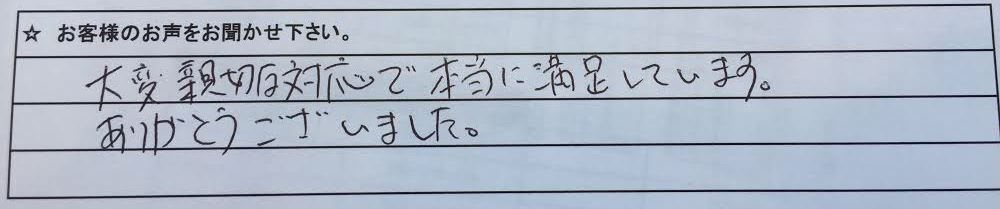 ☆ お客様のお声をお聞かせ下さい。
大変親切な対応で本当に満足しています。
ありがとうございました。